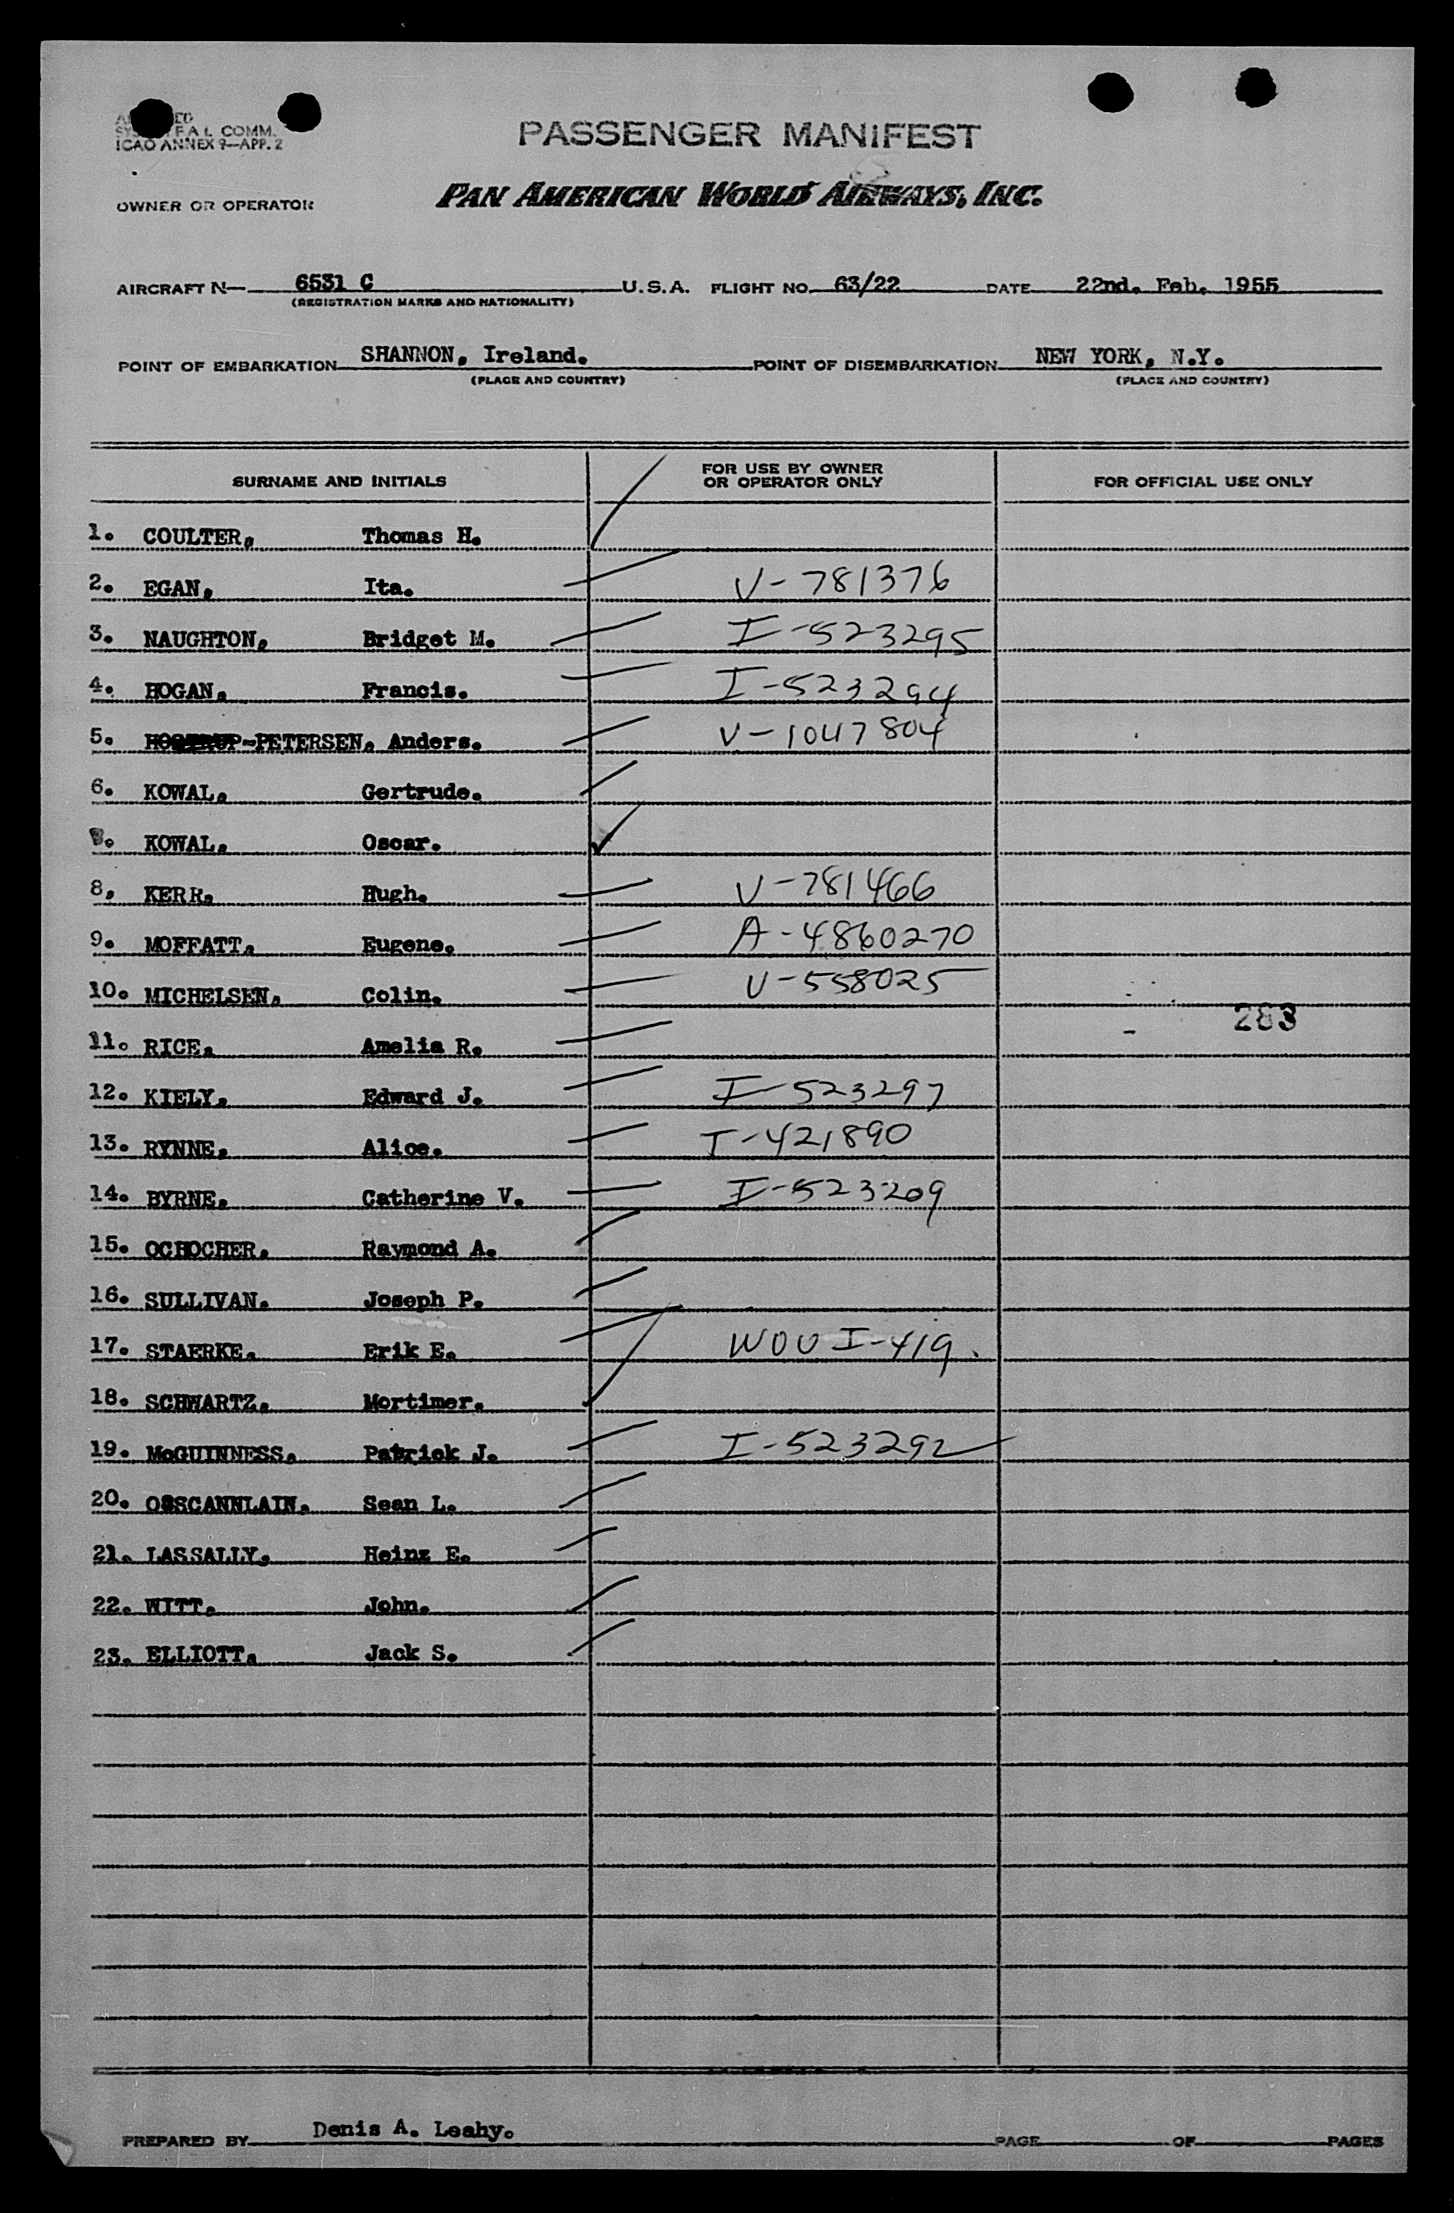 F.A.L. COMM.
ICAO ANNEX 9—APP. 2
PASSENGER MANIFEST
OWNER OR OPERATOR PAN AMERICAN WORLD AIRWAYS, INC.
AIRCRAFT N— 6531 C U.S.A. FLIGHT NO. 63/22 DATE 22nd. Feb. 1955
(REGISTRATION MARKS AND NATIONALITY)
POINT OF EMBARKATION SHANNON, Ireland. POINT OF DISEMBARKATION NEW YORK, N.Y.
(PLACE AND COUNTRY) (PLACE AND COUNTRY)
SURNAME AND INITIALS FOR USE BY OWNER OR OPERATOR ONLY FOR OFFICIAL USE ONLY
1. COULTER, Thomas H.
2. EGAN, Ita. V-781376
3. NAUGHTON, Bridget M. I-523295
4. HOGAN, Francis. I-523294
5. -PETERSEN, Anders. V-1047804
6. KOWAL, Gertrude.
KOWAL, Oscar.
8, KERR, Hugh. V-781466
9. MOFFATT, Eugene. A-4860270
10. MICHELSEN, Colin. V-558025
283
11. RICE, Amelia R.
12. KIELY, Edward J. I-523297
13. RYNNE, Alice. I-421890
14. BYRNE, Catherine V. I-523209
15. OCHOCHER, Raymond A.
16. SULLIVAN, Joseph P.
17. STAERKE, Erik E. WOU I-419.
18. SCHWARTZ, Mortimer.
19. McGUINNESS, Patrick J. I-523292
20. OSSCANNLAIN, Sean L.
21. LASSALLY, Heinz E.
22. WITT, John.
23. ELLIOTT, Jack S.
PREPARED BY Denis A. Leahy. PAGE OF PAGES